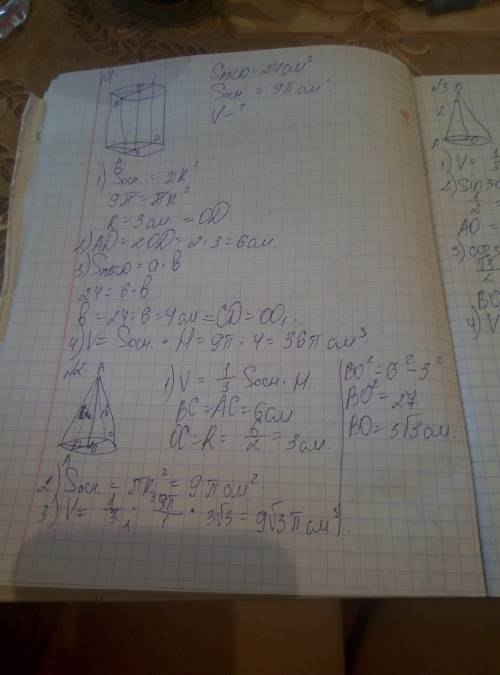 №1
SABCD = 24 см²
Sосн. = 9π см²
V - ?
1) Sосн. = πR²
9π = πR²
R = 3 см. = OD
2) AD = 2OD = 2·3 = 6 см.
3) SABCD = a·b
24 = 6·b
b = 24:6 = 4 см = CD = OO₁.
4) V = Sосн. · H = 9π · 4 = 36π см³
№2
1) V = 1/3 Sосн · H.
BC = AC = 6 см
OC = R = 6/2 = 3 см.
BO² = 6² - 3²
BO² = 27
BO = 3√3 см.
2) Sосн. = πR² = 9π см².
3) V = 1/3 · 9π/1 · 3√3 = 9√3π см³.
№3
1) V = 1/3
2) Sin 30
1/2 =
AO =
3) cos 3
√3/2
BO
4) V